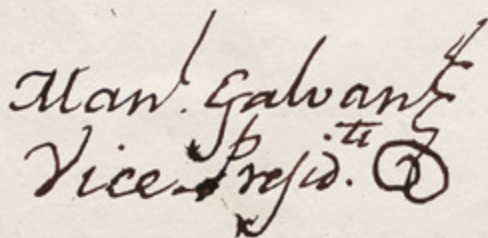 Man.l Galvan
Vice Presid.te